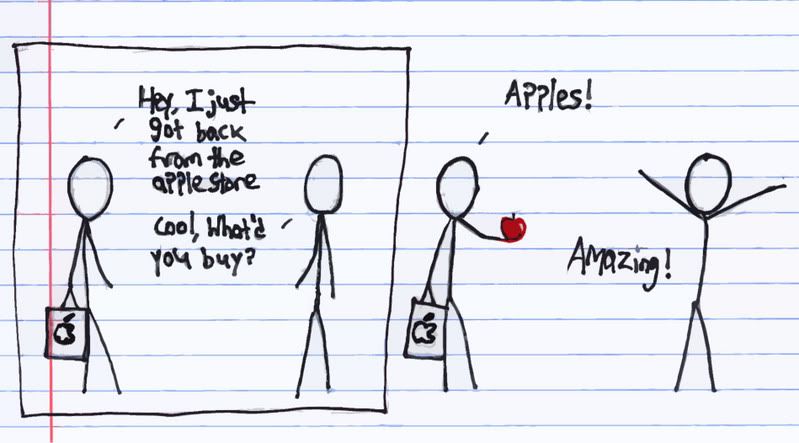 Hey, I just
got back
from the
apple store
Cool, What'd
you buy?
Apples!
Amazing!